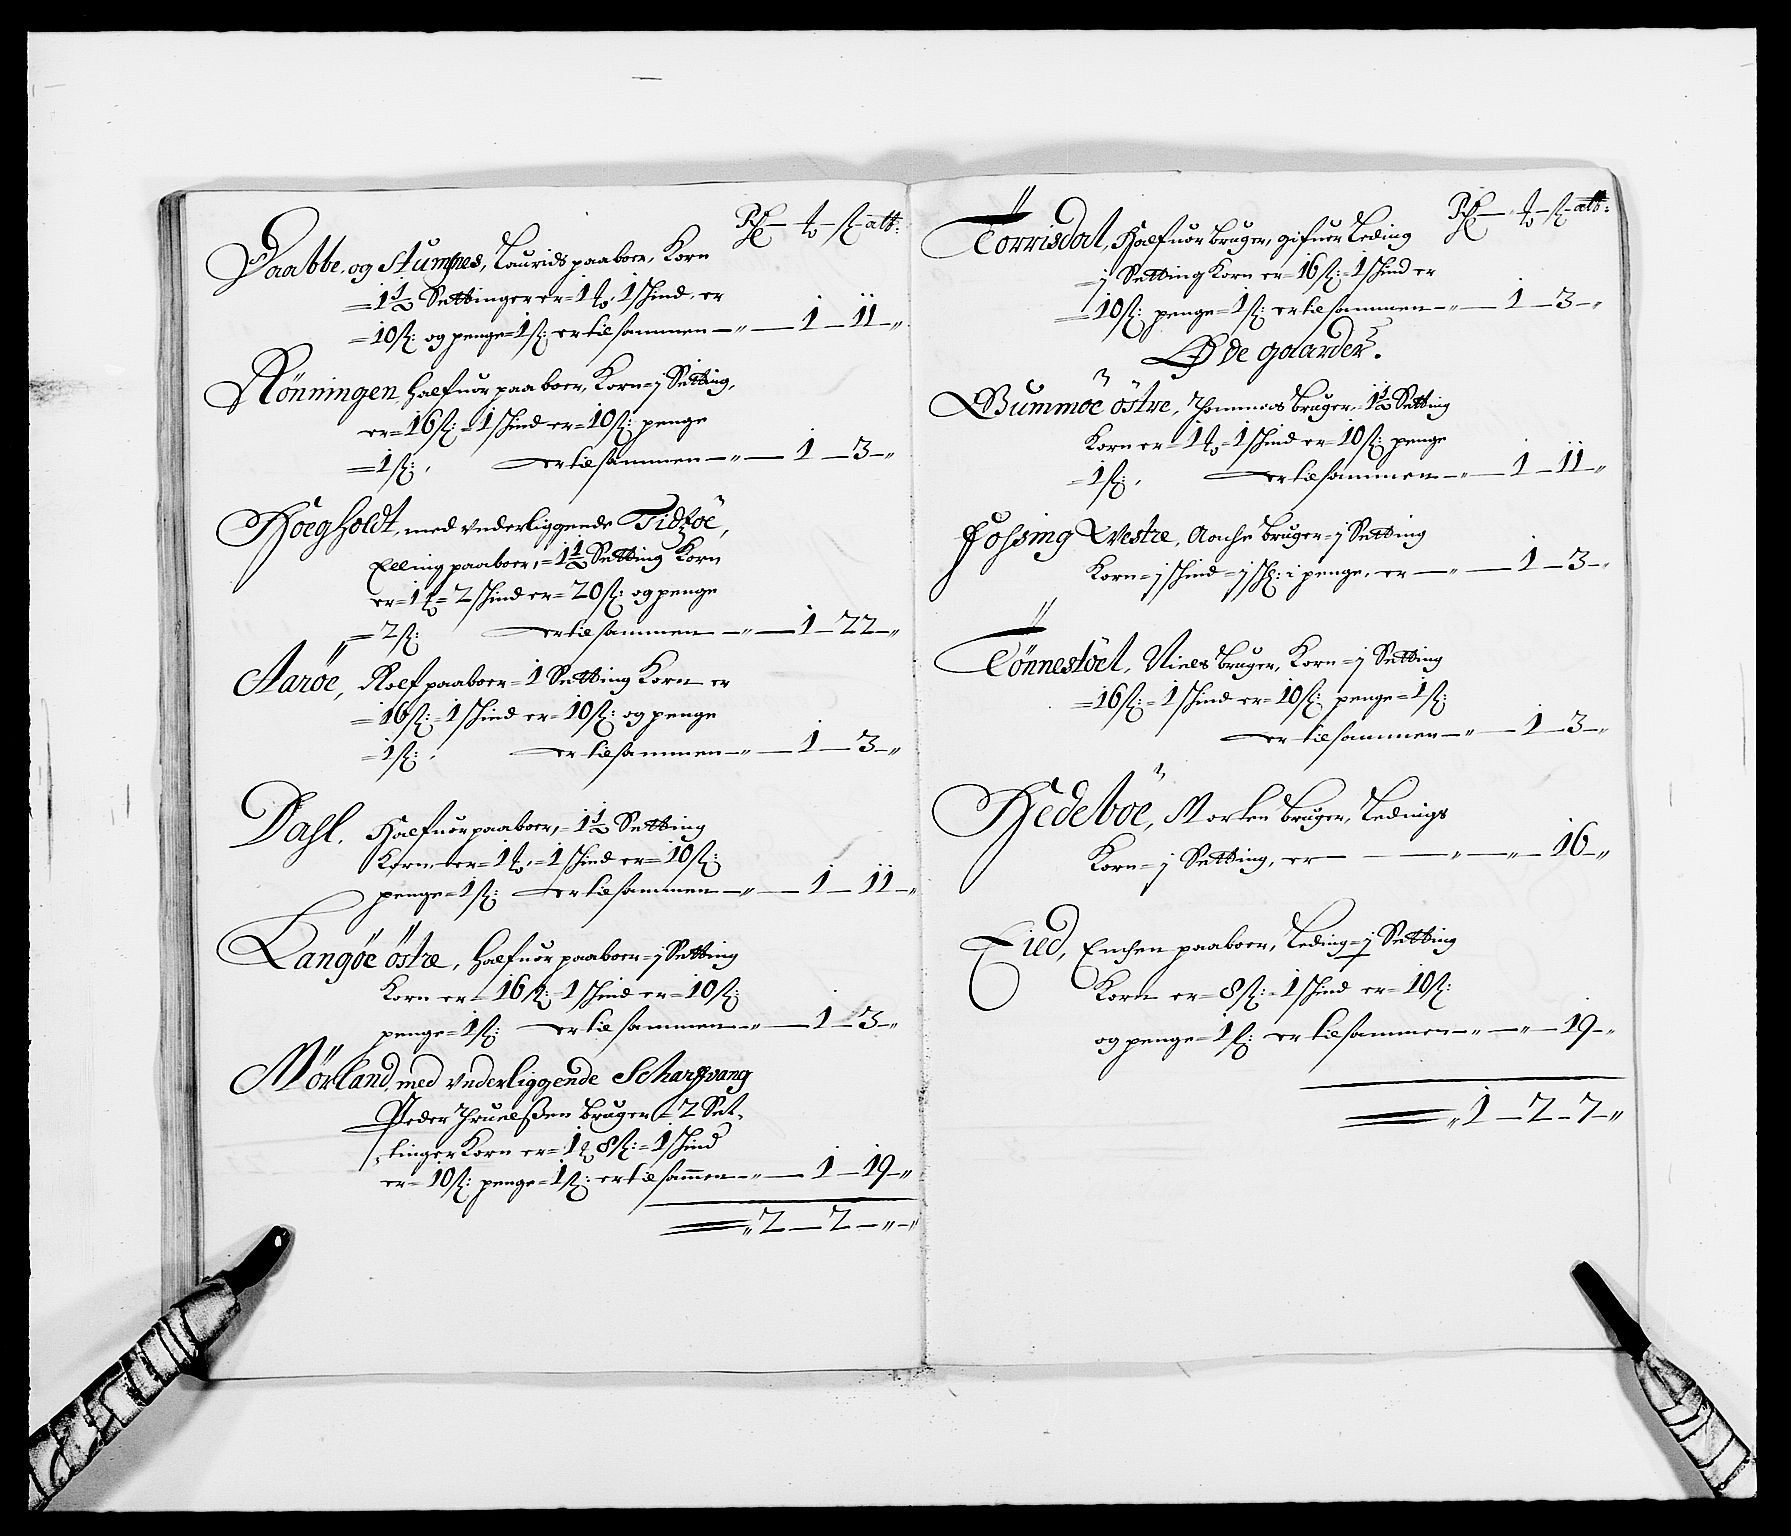 Rd — ort — ß — alb:
Paabbe, og Stumpnes, Laurids paaboer, Korn
= 1½ Settinger er = 1 ort, 1 skind, er
= 10 ß: og penge = 1 ß: er tilsammen — „ — 1 — 11 — „
Rönningen, Halfuor paaboer, Korn = j Setting,
er = 16 ß: = 1 skind er = 10 ß: penge
= 1 ß: , er tilsammen — „ — 1 — 3 — „
Hoegholdt, med vnderliggende Tidzöe,
Elling paaboer, = 1½ Setting Korn
er = 1 ort = 2 skind er = 20 ß: og penge
= 2 ß: er tilsammen — „ — 1 — 22 — „
Aaröe, Rolf paaboer = 1 Setting Korn er
= 16 ß: = 1 skind er = 10 ß: og penge
= 1 ß: , er tilsammen — „ — 1 — 3 — „
Dahl, Halfuor paaboer, = 1½ Setting
Korn, er = 1 ort, = 1 skind er = 10 ß:
penge = 1 ß: er tilsammen — „ — 1 — 11 — „
Langöe östre, Halfuor paaboer = j Setting
Korn er = 16 ß: 1 skind er = 10 ß:
penge = 1 ß: er tilsammen — „ — 1 — 3 — „
Mörland, med vnderliggende Scharffvang
Peder Thruelßen bruger = 2 Set-
tinger Korn er = 1 ort 8 ß: = 1 skind
er = 10 ß: penge = 1 ß: er tilsammen — „ — 1 — 19 — „
„ 2 — 2 — „ — „
Rd — ort — ß — alb:
Torrisdal, Halfuor bruger, gifuer Leding
= j Setting Korn er = 16 ß: = 1 skind er
= 10 ß: penge = 1 ß: er tilsammen — „ — 1 — 3 — „
Öde gaarder.
Bummöe östre, Thommas bruger, = 1½ Setting
Korn er = 1 ort = 1 skind er = 10 ß: penge
= 1 ß: , er tilsammen — „ — 1 — 11 — „
Fossing Westre, Aasse bruger = j Setting
Korn = j skind = j ß: i penge, er — „ — 1 — 3 — „
Tönnestöel, Niels bruger, Korn = j Setting
= 16 ß: = 1 skind er = 10 ß: penge = 1 ß:
er tilsammen — „ — 1 — 3 — „
Hedeböe, Morten bruger, Ledings
Korn = j Setting, er — — „ — „ — 16 — „
Eied, Enchen paaboer, Leding = ½ Setting
Korn er = 8 ß: = 1 skind er = 10 ß:
og penge = 1 ß: er tilsammen — „ — „ — 19 — „
„ 1 — 2 — 7 — „